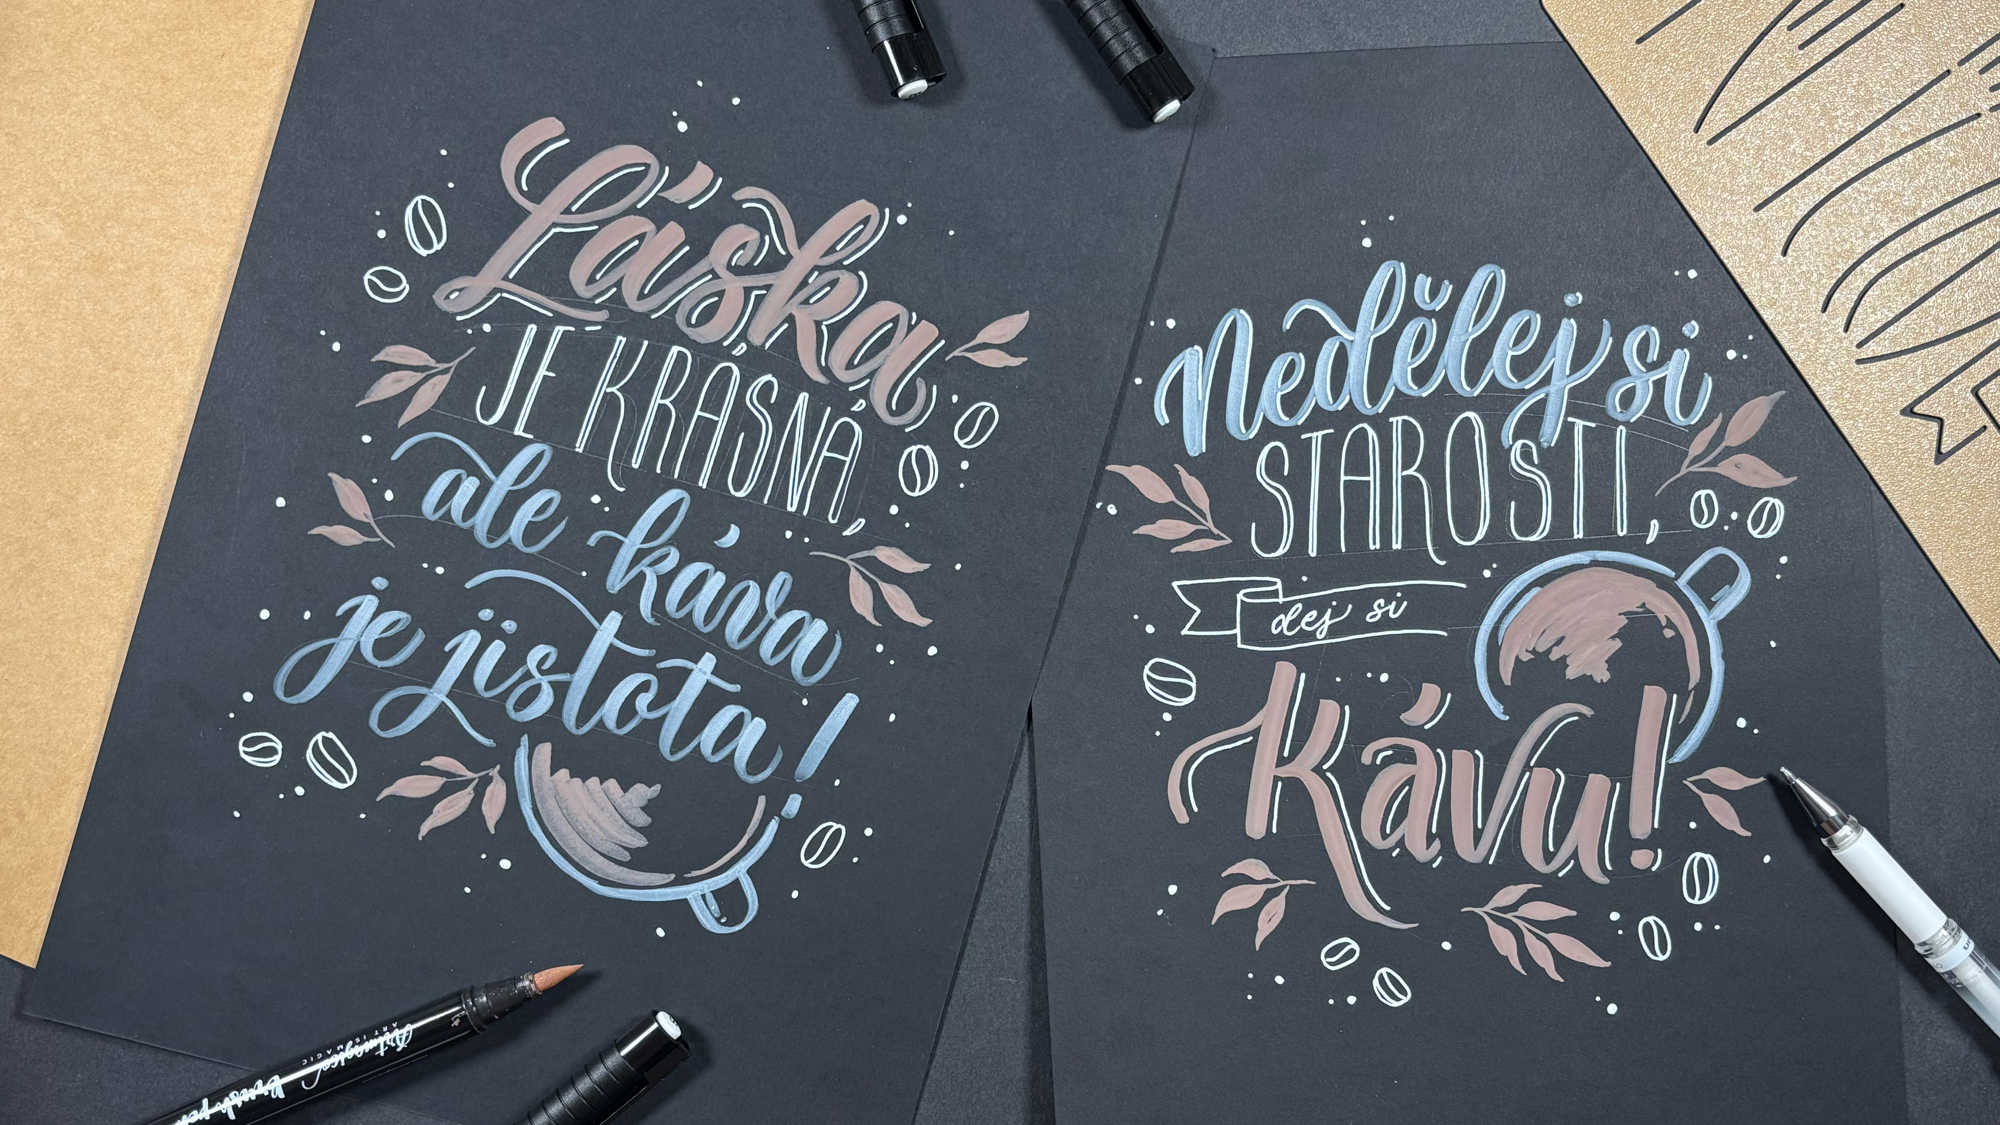 Láska
JE KRÁSNÁ,
ale káva
je jistota!
Nedělej si
STAROSTI,
dej si
Kávu!
Artmagico
ART IS MAGIC
Brush pen